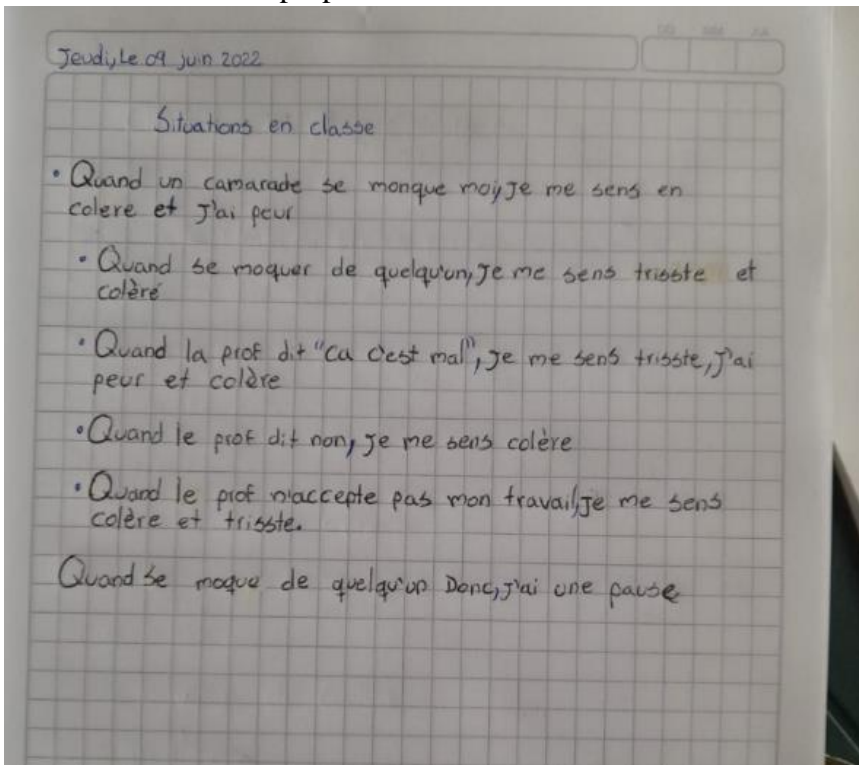 Jeudi, Le 09 juin 2022
Situations en classe
• Quand un camarade se monque moi, Je me sens en
colere et J'ai peur
• Quand se moquer de quelqu'un, Je me sens trisste et
colèré
• Quand la prof dit "Ca c'est mal", Je me sens trisste, J'ai
peur et colère
• Quand le prof dit non, Je me sens colère
• Quand le prof n'accepte pas mon travail, Je me sens
colère et trisste.
Quand se moque de quelqu'un Donc, J'ai une pause